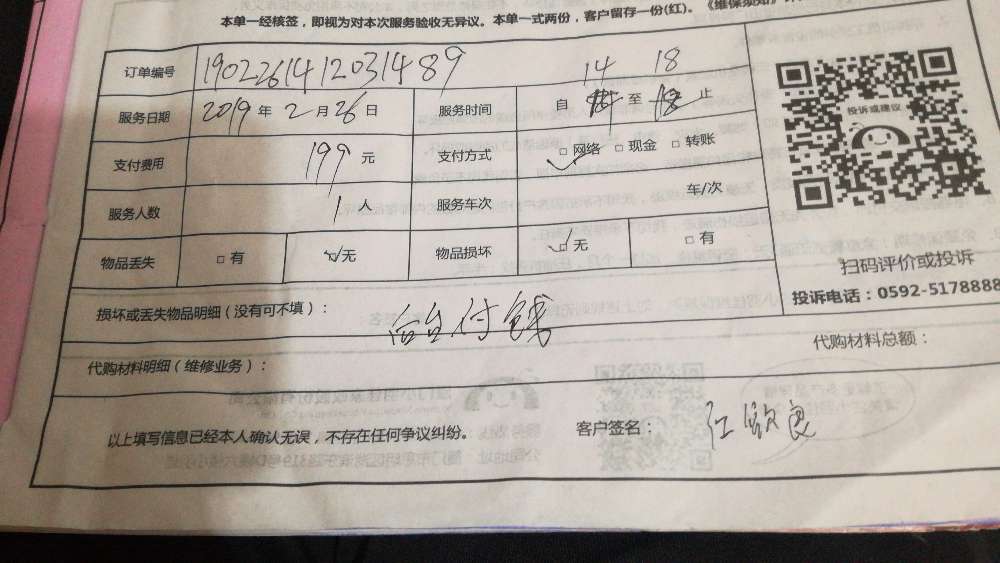 本单一经核签，即视为对本次服务验收无异议。本单一式两份，客户留存一份(红)。《维保须知》
订单编号 1902261412031489
14 18
服务日期 2019 年 2 月 26 日 服务时间 自 至 18 止
支付费用 199 元 支付方式 □ 网络 □ 现金 □ 转账
服务人数 1 人 服务车次 车/次
物品丢失 □ 有 □ 无 物品损坏 □ 无 □ 有
投诉或建议
扫码评价或投诉
投诉电话：0592-5178888
损坏或丢失物品明细（没有可不填）：
后台付钱
代购材料明细（维修业务）： 代购材料总额：
以上填写信息已经本人确认无误，不存在任何争议纠纷。 客户签名： 江敏良